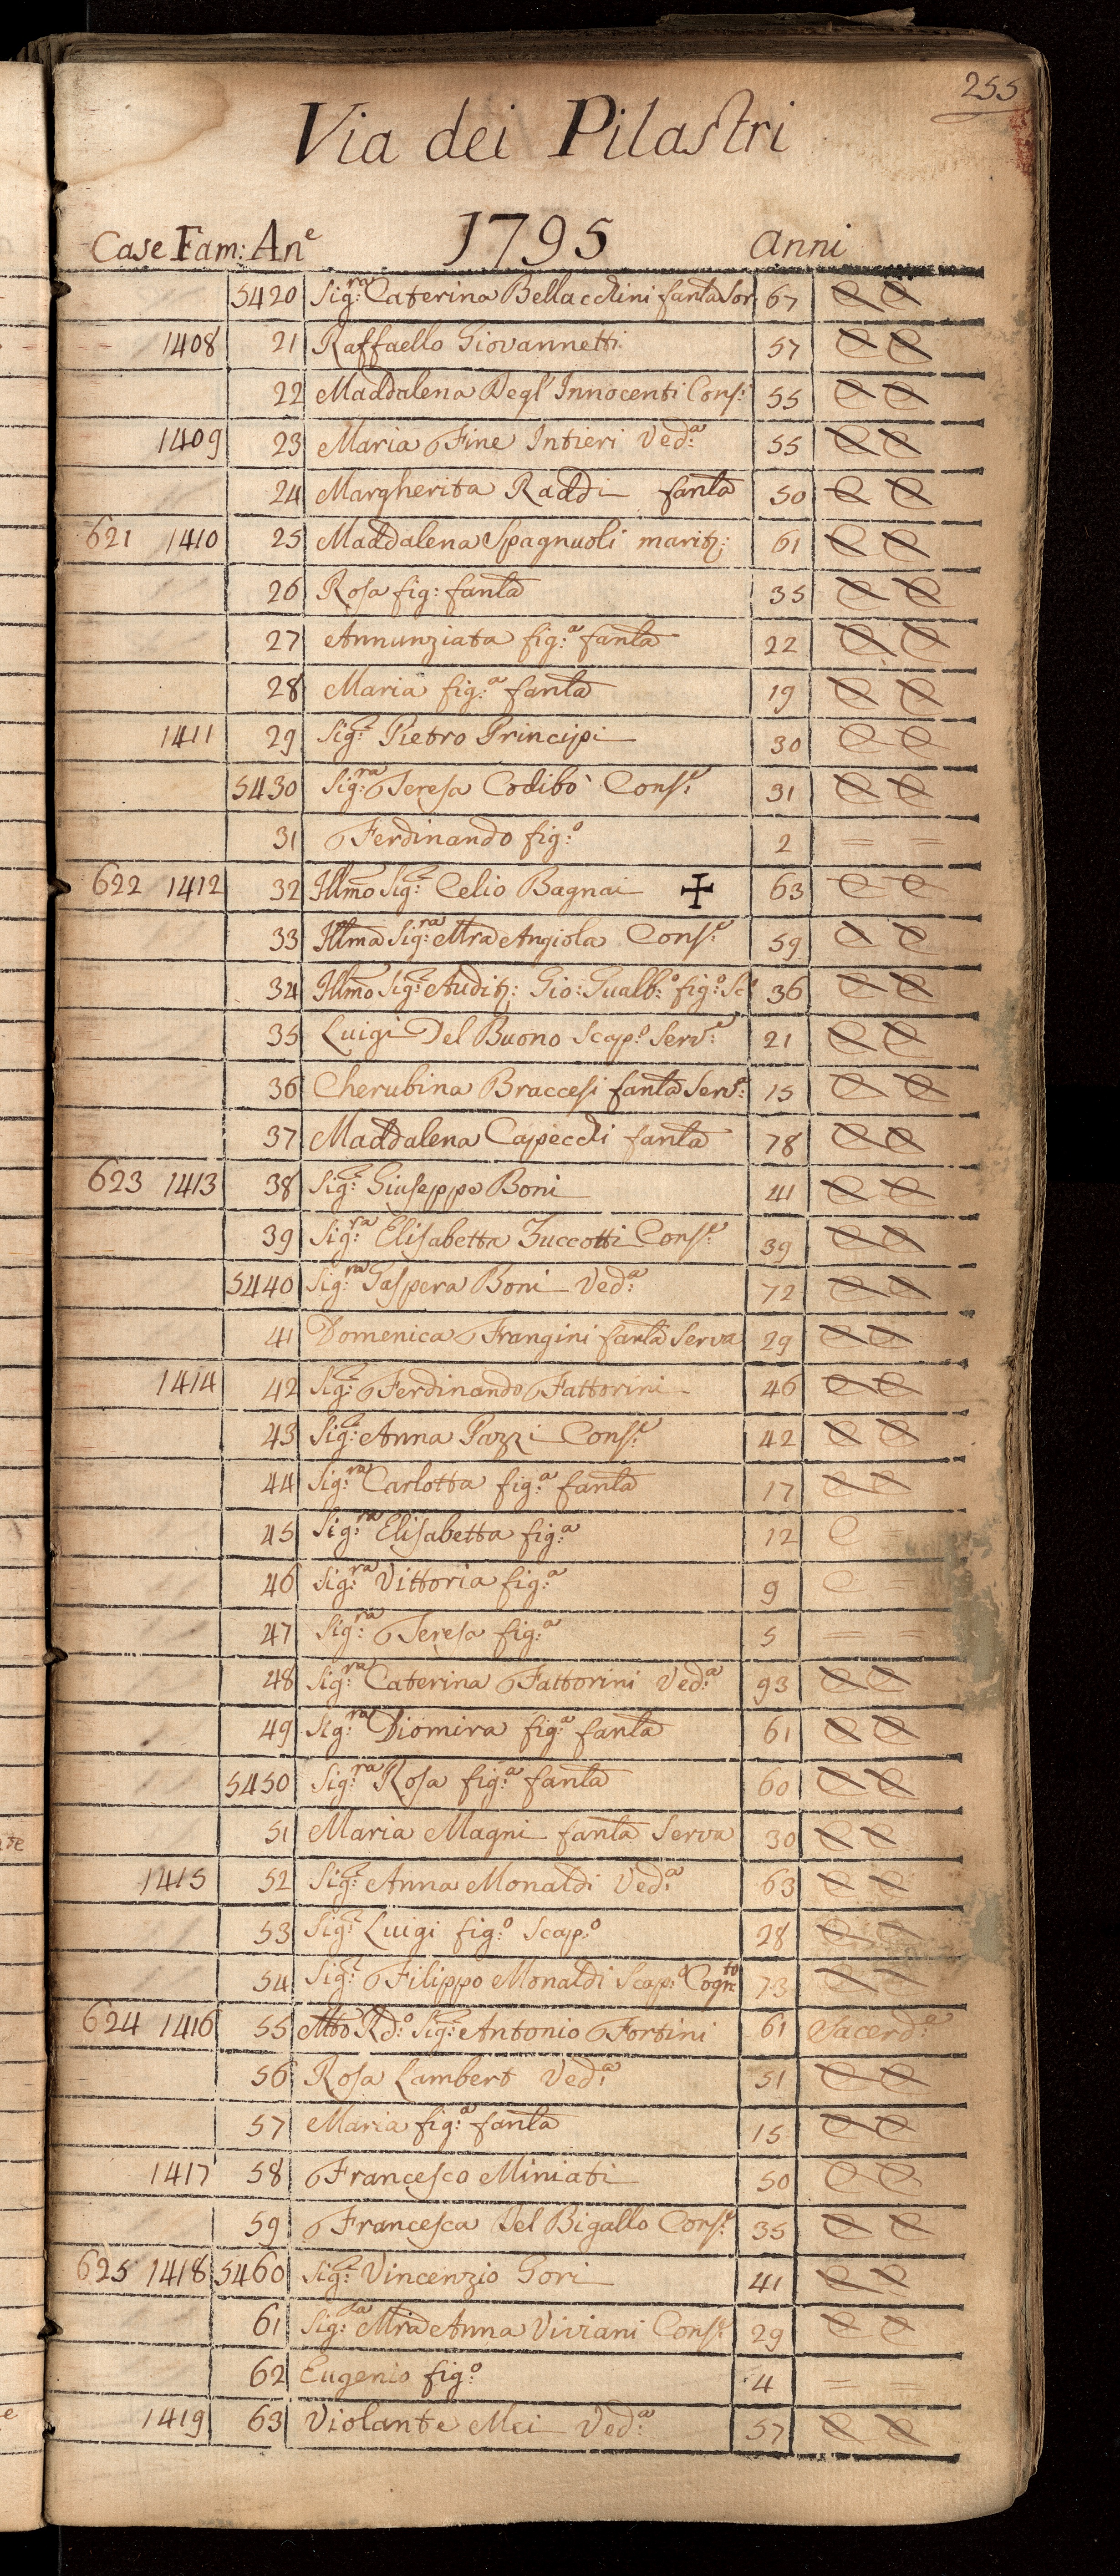 255
Via dei Pilastri
Case Fam: An.e 1795 anni
5420 Sig.ra Caterina Bellacchini fanla Sor. 67 C C
1408 21 Raffaello Giovannetti 57 C C
22 Maddalena Degl' Innocenti Cons: 55 C C
1409 23 Maria Fine Intieri Ved.a 55 C C
24 Margherita Raddi fanla 50 C C
621 1410 25 Maddalena Spagnuoli marit: 61 C C
26 Rosa fig: fanla 35 C C
27 Annunziata fig.a fanla 22 C C
28 Maria fig.a fanla 19 C C
1411 29 Sig.r Pietro Principi 30 C C
5430 Sig.ra Teresa Codibò Cons.e 31 C C
31 Ferdinando fig.o 2 = =
622 1412 32 Illmo Sig.r Celio Bagnai ✠ 63 C C
33 Illma Sig.ra Mra Angiola Cons.e 59 C C
34 Illmo Sig.r Audit: Gio: Gualb.o fig.o 36 C C
35 Luigi Del Buono Scap.o Serv.e 21 C C
36 Cherubina Braccesi fanla Serv.e 15 C C
37 Maddalena Capecchi fanla 78 C C
623 1413 38 Sig.r Giuseppe Boni 41 C C
39 Sig.ra Elisabetta Zuccotti Cons.e 39 C C
5440 Sig.ra Gaspera Boni Ved.a 72 C C
41 Domenica Frangini fanla Serva 29 C C
1414 42 Sig.r Ferdinando Fattorini 46 C C
43 Sig.a Anna Pazzi Cons.e 42 C C
44 Sig.ra Carlotta fig.a fanla 17 C C
45 Sig.ra Elisabetta fig.a 12 C
46 Sig.ra Vittoria fig.a 9 C
47 Sig.ra Teresa fig.a 5 = =
48 Sig.ra Caterina Fattorini Ved.a 93 C C
49 Sig.ra Diomira fig.a fanla 61 C C
5450 Sig.ra Rosa fig.a fanla 60 C C
51 Maria Magni fanla Serva 30 C C
1415 52 Sig.a Anna Monaldi Ved.a 63 C C
53 Sig.r Luigi fig.o Scap.o 28 C C
54 Sig.r Filippo Monaldi Scap.o Cogn.to 73 C C
624 1416 55 Mto Rd.o Sig.r Antonio Fortini 61 Sacerd.e
56 Rosa Lambert Ved.a 51 C C
57 Maria fig.a fanla 15 C C
1417 58 Francesco Miniati 50 C C
59 Francesca Del Bigallo Cons.e 35 C C
625 1418 5460 Sig.r Vincenzio Gori 41 C C
61 Sig.ra Mria Anna Viviani Cons.e 29 C C
62 Eugenio fig.o 4 = =
1419 63 Violante Mei Ved.a 57 C C